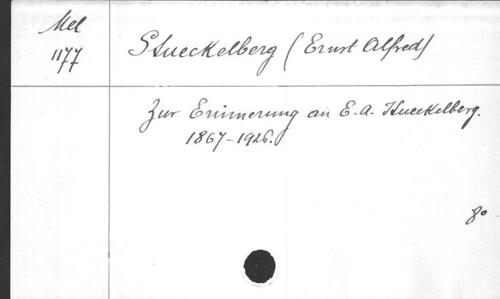 Mel
1177
Stueckelberg (Ernst Alfred)
Zur Erinnerung an E. A. Stueckelberg.
1867-1926.
8o